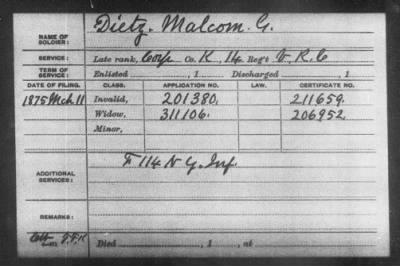 NAME OF SOLDIER: Dietz, Malcom G.
SERVICE: Late rank, Corp Co. K, 14 Reg't V. R. C
TERM OF SERVICE: Enlisted , 1 Discharged , 1
DATE OF FILING. CLASS. APPLICATION NO. LAW. CERTIFICATE NO.
1875 Mch 11 Invalid, 201380. 211659.
Widow, 311106. 206952.
Minor,
ADDITIONAL SERVICES: F 114 N Y. Inf
REMARKS:
Died , 1 , at